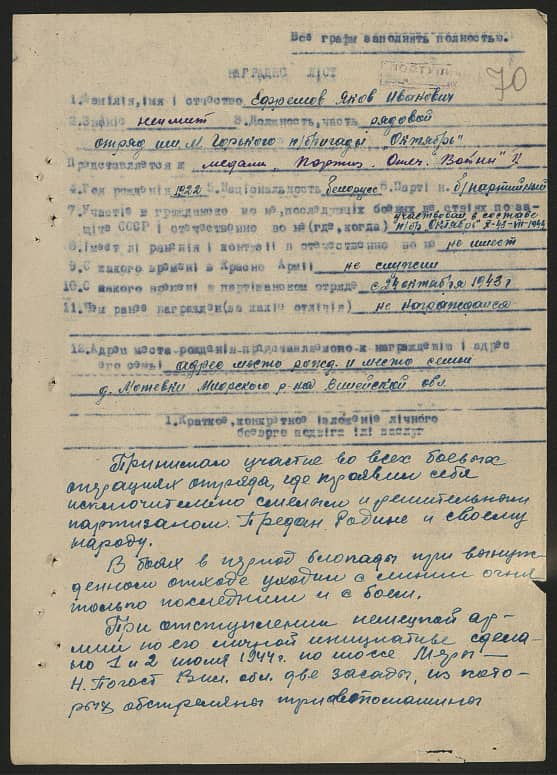 Все графы заполнять полностью.
НАГРАДНО ЛІСТ
ПОСТУПИ
70
1.Фамілія,імя і отчество Ефремов Яков Иванович
2.Звание не имеет 3.Должность,часть рядовой
отряд им М. Горького п/бригады "Октябрь"
Представляется к медали "Партиз. Отеч. Войны" 2
4.Год рождения 1922 5.Національность белорус 6.Парті н. б/партийный
7.Участіе в гражданско во не,последующіх боевых действіях по за-
щіте СССР і отечественно во не(где,когда) участвовал в составе
п/бр. Октябрь X-43-VII-1944
8.Імеет лі раненія і контузіі в отечественно во не не имеет
9.С какого времені в Красно Арміі не служил
10.С какого времені в партізанском отряде с 24 октября 1943 г
11.Чем ранее награжден(за какіе отлічія) не награждался
12.Адрес места-рожденія-представляемого-к награжденію і адрес
его семьі адрес место рожд. и место семьи
д. Мотевки Миорского р-на Вилейской обл.
1.Краткое,конкретное ізложеніе лічного
боевого подвіга ілі заслуг
Принимал участие во всех боевых
операциях отряда, где проявил себя
исключительно смелым и решительным
партизаном. Предан Родине и своему
народу.
В боях в период блокады при вынуж-
денном отходе уходил с линии огня
только последним и с боем.
При отступлении немецкой ар-
мии по его личной инициативе сдела-
но 1 и 2 июля 1944г. по шоссе Мёры —
Н. Погост Вил. обл. две засады, из кото-
рых обстреляны три автомашины